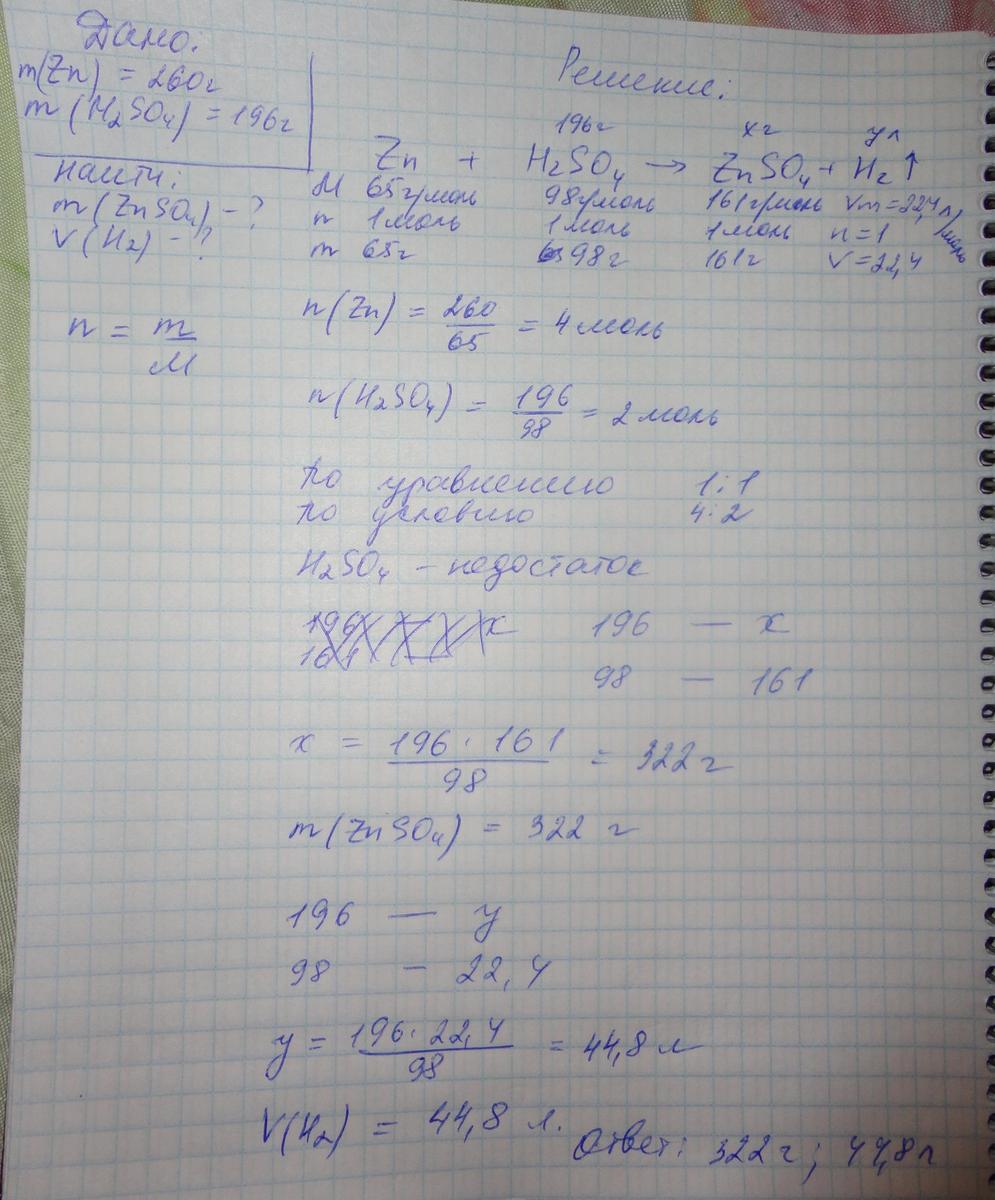 Дано:
m(Zn) = 260г
m(H₂SO₄) = 196г
Найти:
m(ZnSO₄) - ?
V(H₂) - ?
n = m/M
Решение:
196г хг ул
Zn + H₂SO₄ → ZnSO₄ + H₂↑
M 65г/моль 98г/моль 161г/моль Vm = 22,4 л/моль
n 1моль 1моль 1моль n=1
m 65г 98г 161г V=22,4
n(Zn) = 260/65 = 4 моль
n(H₂SO₄) = 196/98 = 2 моль
По уравнению 1:1
По условию 4:2
H₂SO₄ - недостаток
196 — х
98 — 161
х = 196 · 161/98 = 322 г
m(ZnSO₄) = 322 г
196 — у
98 — 22,4
у = 196 · 22,4/98 = 44,8 л
V(H₂) = 44,8 л.
Ответ: 322 г; 44,8 л